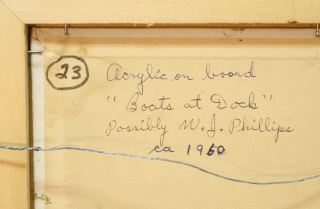 23
Acrylic on board
"Boats at Dock"
Possibly W. J. Phillips
ca 1960